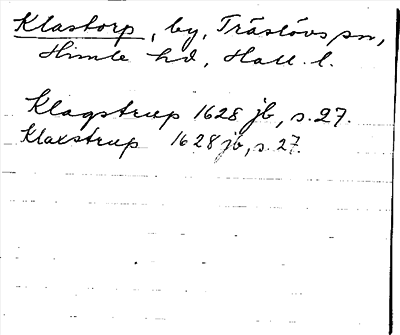 Klastorp, by, Träslövs sn,
Himle hd, Hall. l.
Klagstrup 1628 jb, s. 27.
Klaxstrup 1628 jb, s. 27.